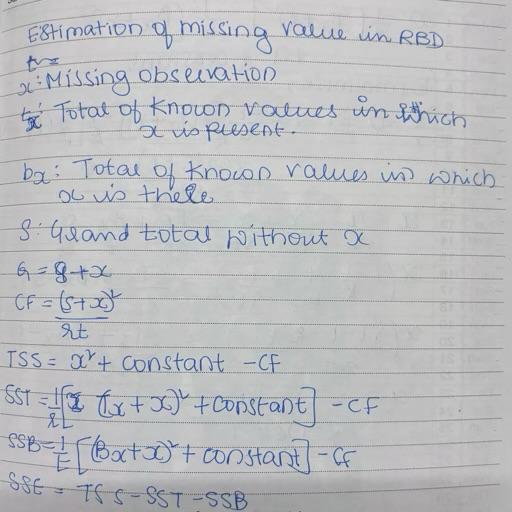 Estimation of missing value in RBD
x: Missing observation
tx: Total of known values in which
x is present.
bx: Total of known values in which
x is there
S: Grand total without x
G = S+x
CF = (S+x)²
rt
TSS = x² + constant - CF
SST = 1/r [(Tx + x)² + constant] - CF
SSB = 1/t [(Bx+x)² + constant] - CF
SSE = TSS - SST - SSB